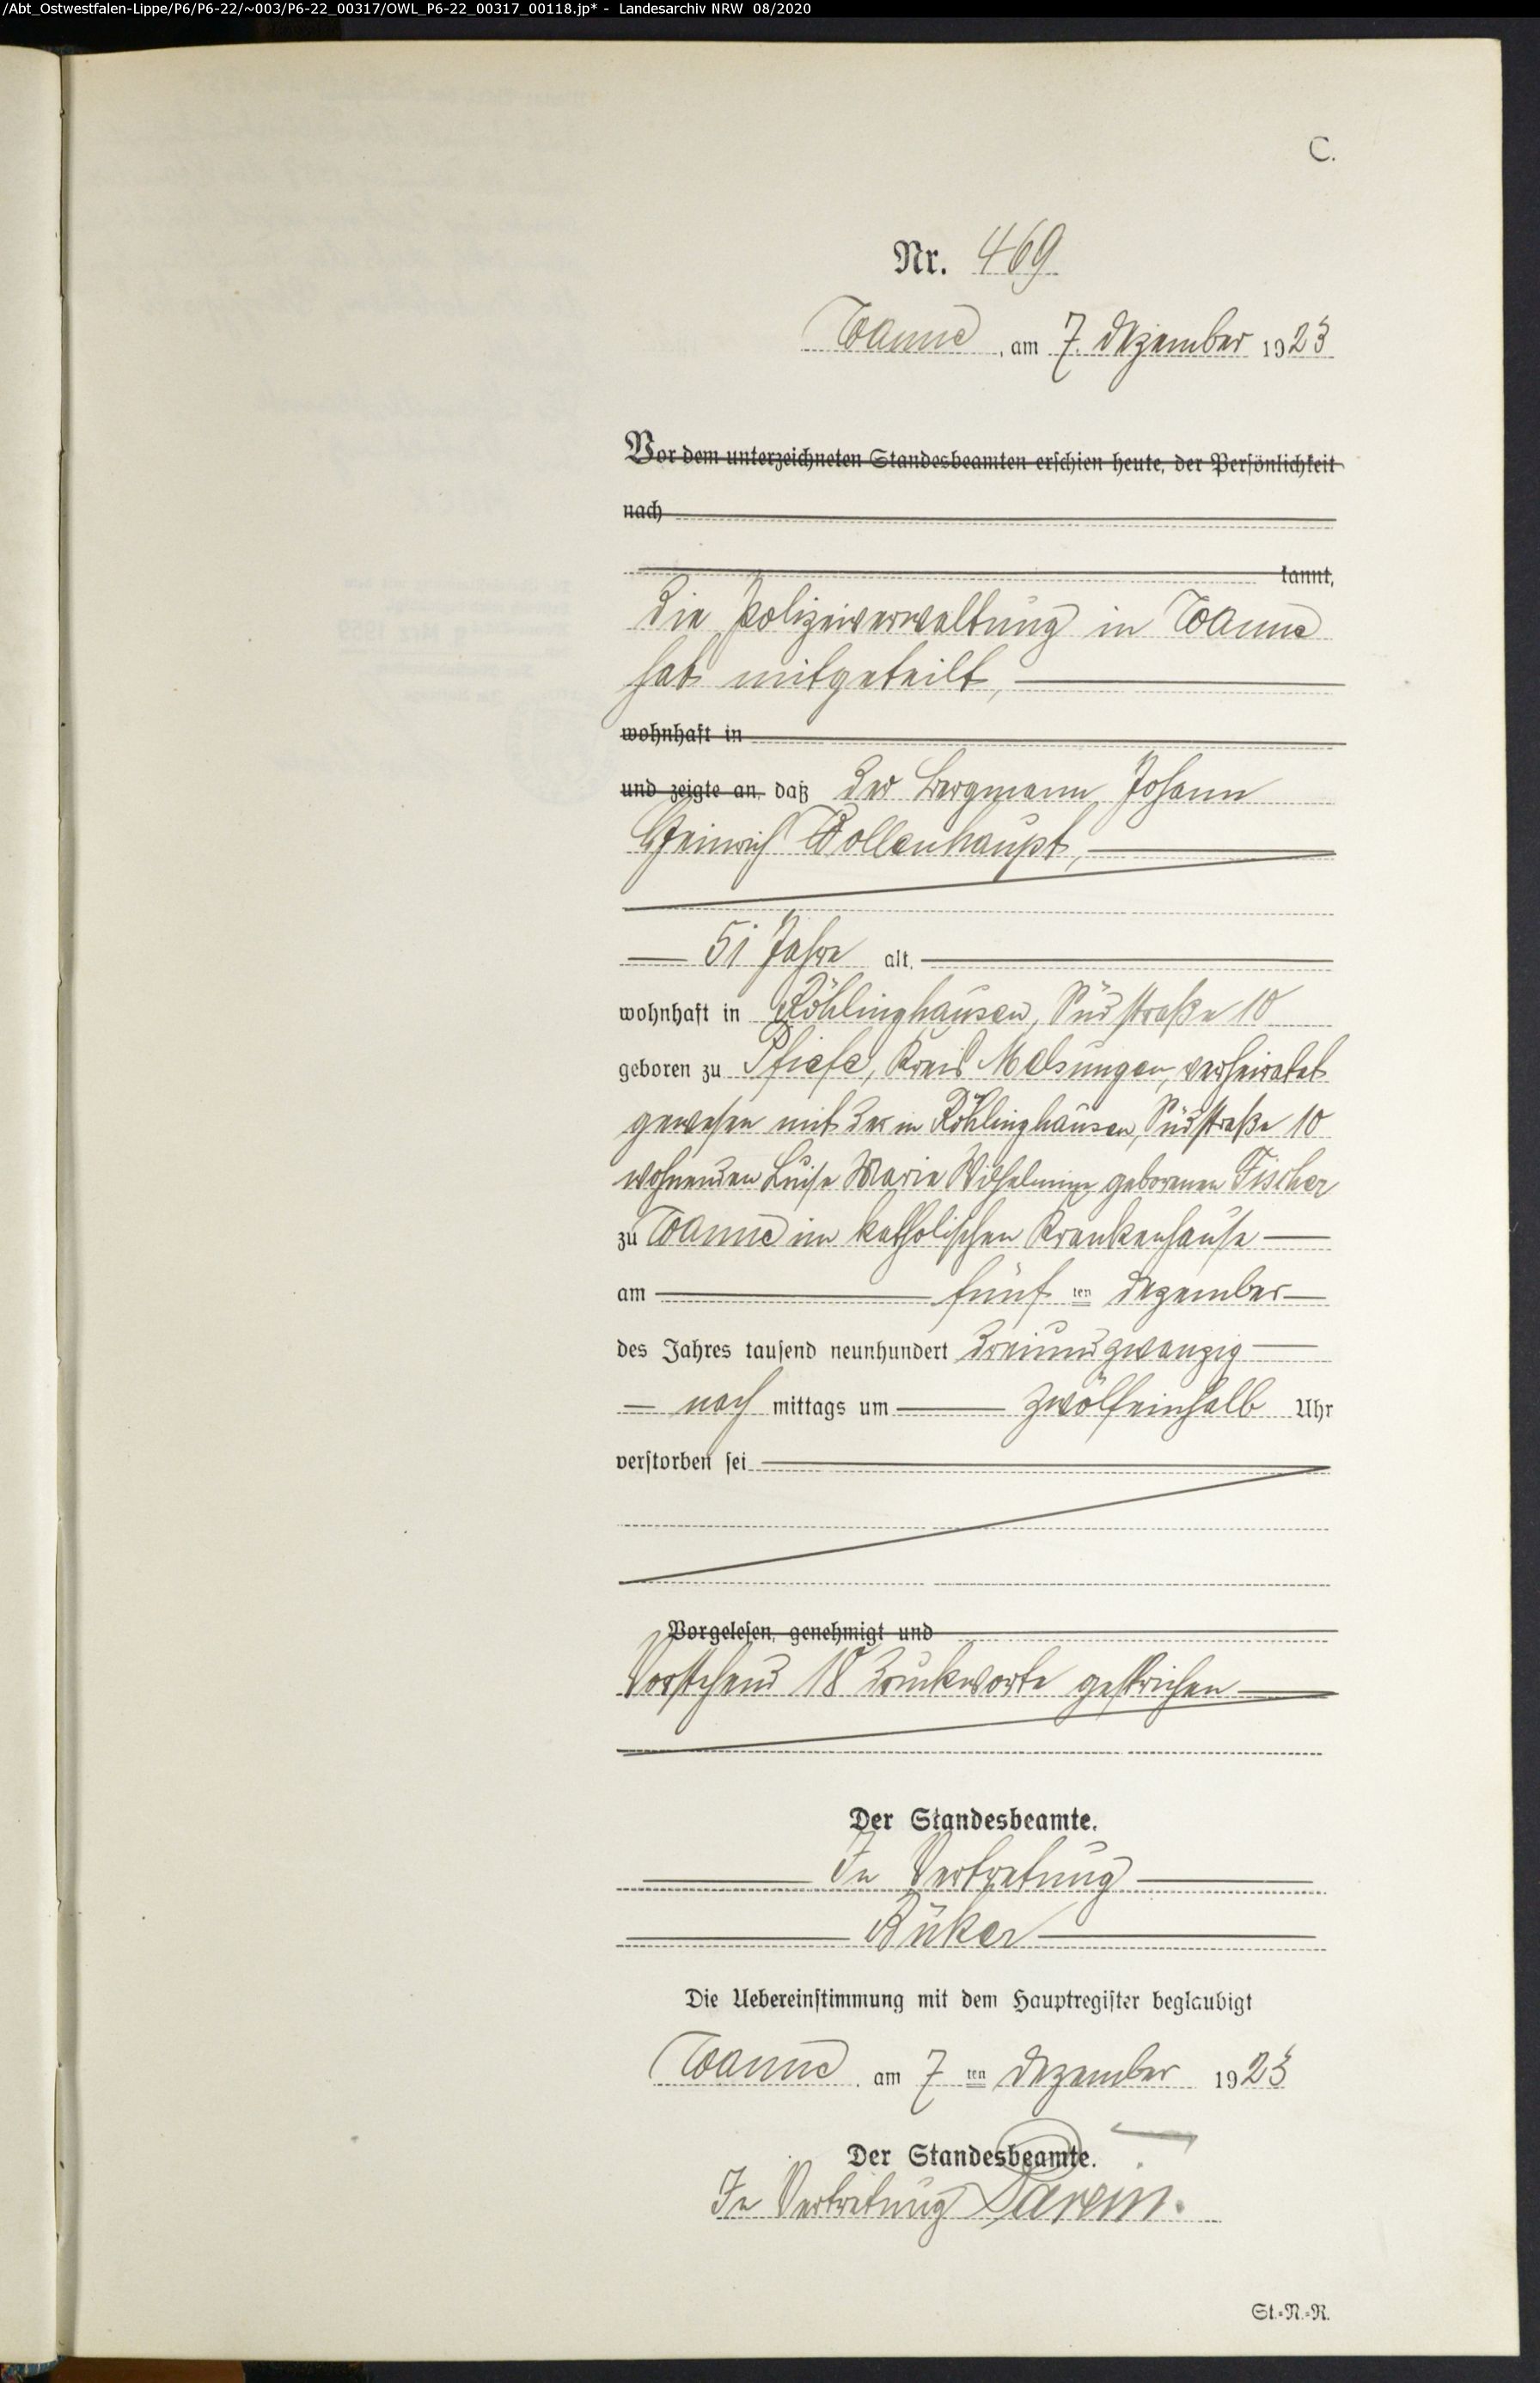 /Abt_Ostwestfalen-Lippe/P6/P6-22/~003/P6-22_00317/OWL_P6-22_00317_00118.jp* - Landesarchiv NRW 08/2020
C.
Nr. 469
Wanne, am 7. Dezember 1923
Vor dem unterzeichneten Standesbeamten erschien heute, der Persönlichkeit
nach
kannt,
Die Polizeiverwaltung in Wanne
hat mitgeteilt,
wohnhaft in
und zeigte an, daß der Bergmann Johann
Heinrich Wollenhaupt,
51 Jahre alt,
wohnhaft in Röhlinghausen, Südstraße 10
geboren zu Pfiefe, Kreis Melsungen, verheiratet
gewesen mit der in Röhlinghausen, Südstraße 10
wohnenden Luise Marie Wilhelmine geborenen Fischer
zu Wanne im katholischen Krankenhause
am fünf ten Dezember
des Jahres tausend neunhundert dreiundzwanzig
nach mittags um zwölfeinhalb Uhr
verstorben sei
Vorgelesen, genehmigt und
Vorstehend 18 Druckworte gestrichen
Der Standesbeamte.
In Vertretung
Büker
Die Uebereinstimmung mit dem Hauptregister beglaubigt
Wanne, am 7 ten Dezember 1923
Der Standesbeamte.
In Vertretung
St.=N.=R.